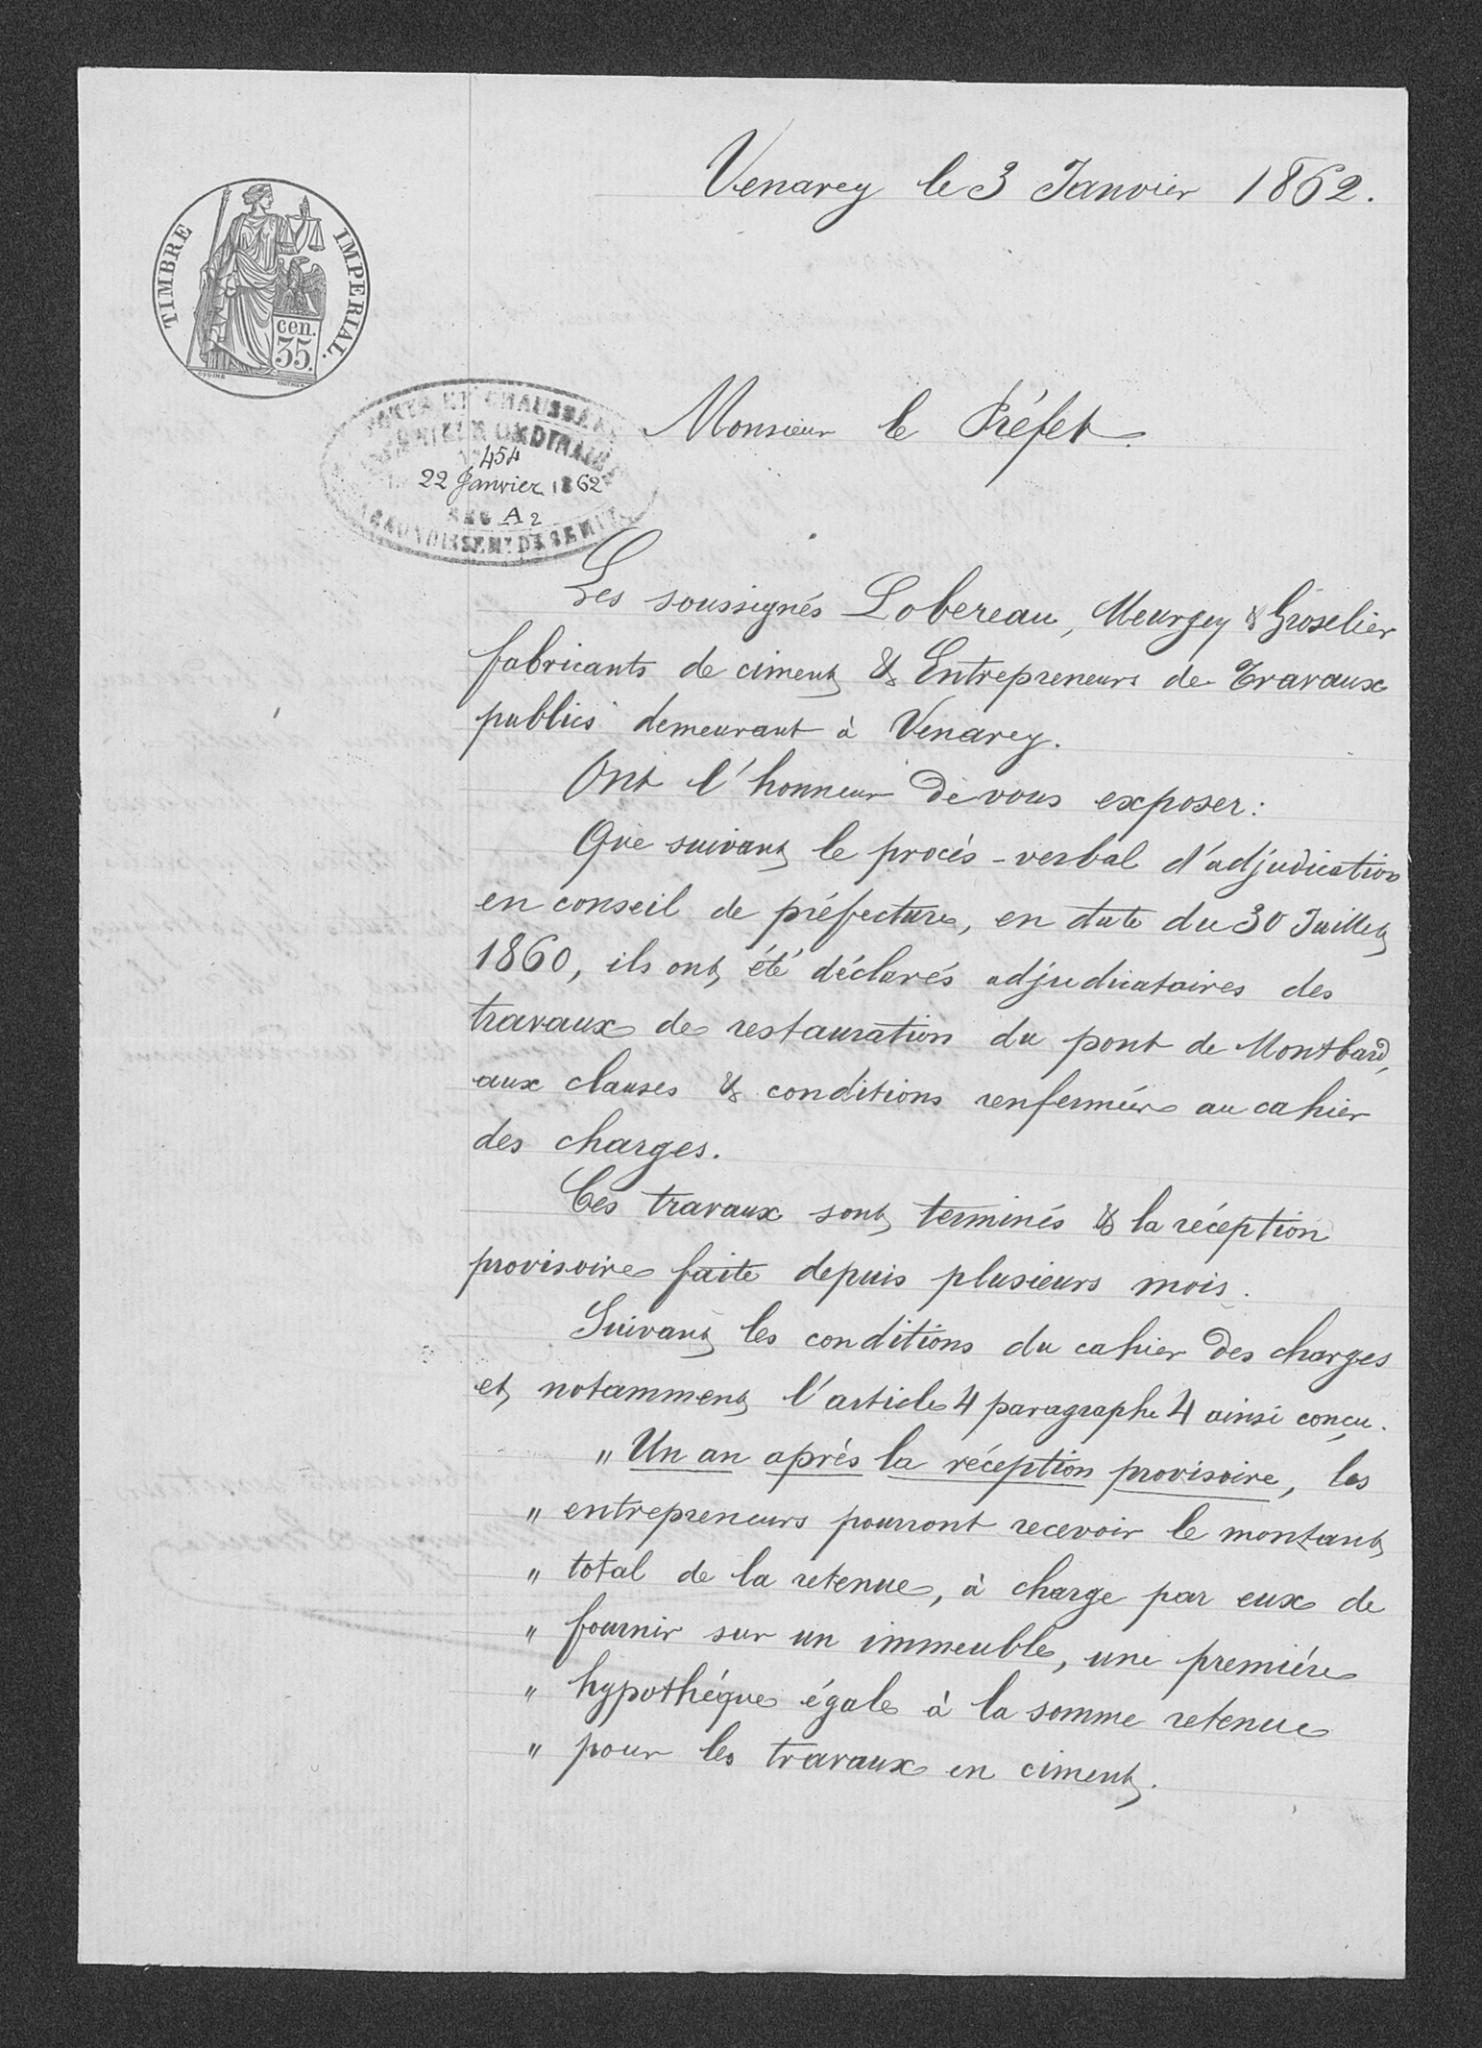 Venarey le 3 Janvier 1862.
TIMBRE IMPERIAL.
cen.
35.
PONTS ET CHAUSSÉES
INGÉNIEUR ORDINAIRE
454
22 Janvier 1862
A 2
ARRONDISSEMT DE SEMUR
Monsieur le Préfet.
Les soussignés Lobereau, Meurgey & Groselier
fabricants de ciment & Entrepreneurs de Travaux
publics demeurant à Venarey.
Ont l'honneur de vous exposer:
Que suivant le procès-verbal d'adjudication
en conseil de préfecture, en date du 30 Juillet
1860, ils ont été déclarés adjudicataires des
travaux de restauration du pont de Montbard,
aux clauses & conditions renfermées au cahier
des charges.
Ces travaux sont terminés & la réception
provisoire faite depuis plusieurs mois.
Suivant les conditions du cahier des charges
et notamment l'article 4 paragraphe 4 ainsi conçu.
" Un an après la réception provisoire, les
" entrepreneurs pourront recevoir le montant
" total de la retenue, à charge par eux de
" fournir sur un immeuble, une première
" hypothéque égale à la somme retenue
" pour les travaux en ciment.